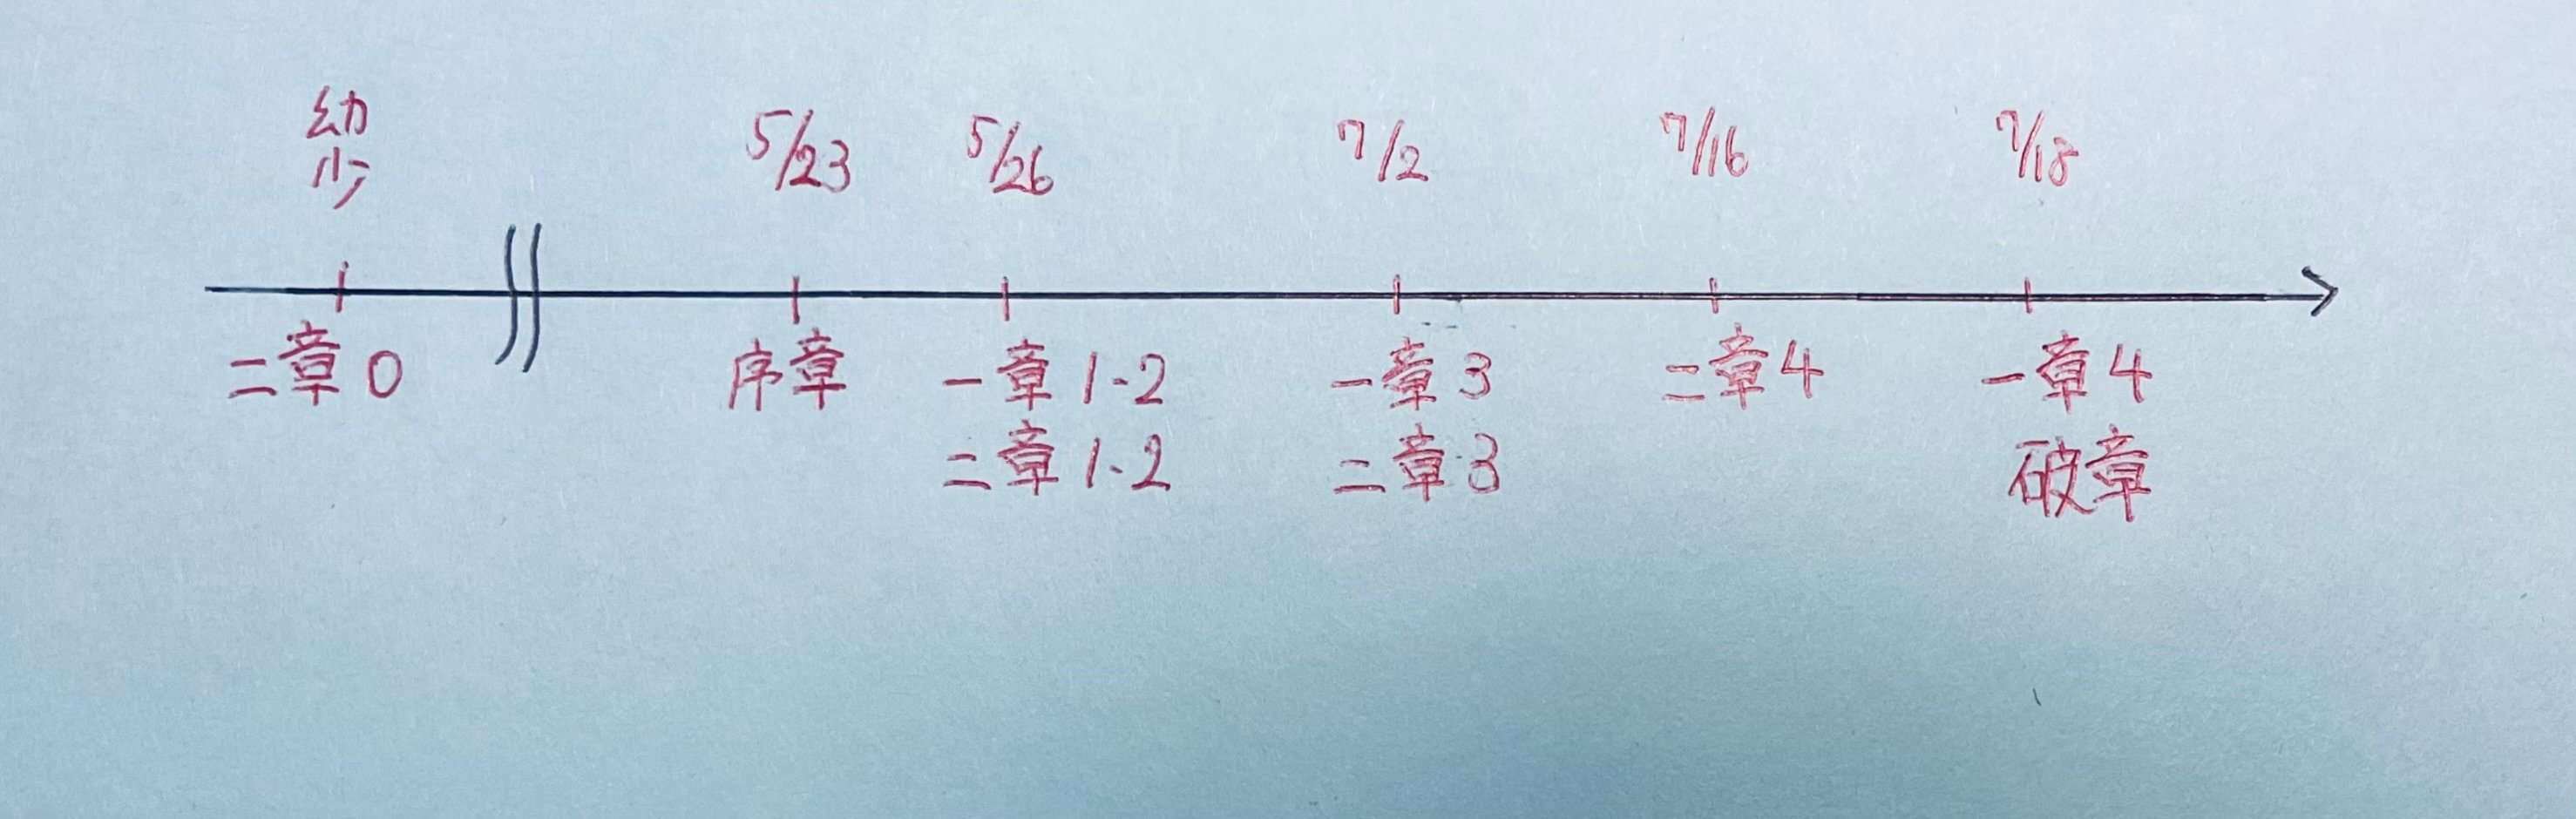 幼少
5/23
5/26
7/2
7/16
7/18
二章0
序章
一章1-2
二章1-2
一章3
二章3
二章4
一章4
破章